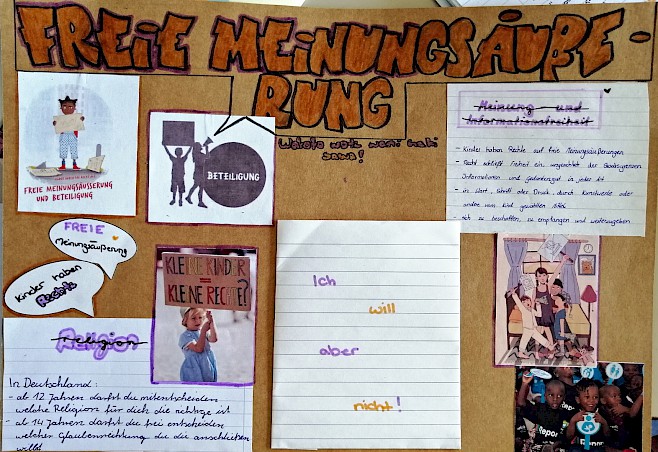 FREIE MEINUNGSÄUßE-
RUNG
Watoto wote wana haki
sawa!
FREIE MEINUNGSÄUSSERUNG
UND BETEILIGUNG
BETEILIGUNG
Meinung und
Informationsfreiheit
- Kinder haben Rechte auf freie Meinungsäußerungen
- Recht schließt Freiheit ein ungeachtet der Staatsgrenzen
Informationen und Gedankengut in jeder Art
- in Wort, Schrift oder Druck, durch Kunstwerke oder
andere vom Kind gewählten
- sich zu beschaffen, zu empfangen und weiterzugeben
FREIE
Meinungsäußerung
Kinder haben
Rechte
KLEINE KINDER
KLEINE RECHTE?
Ich
will
aber
nicht!
Religion
In Deutschland:
- ab 12 Jahren darfst du mitentscheiden
welche Religion für dich die richtige ist
- ab 14 Jahren darfst du frei entscheiden
welcher Glaubensrichtung du du anschließen
willst
Repor
Repor